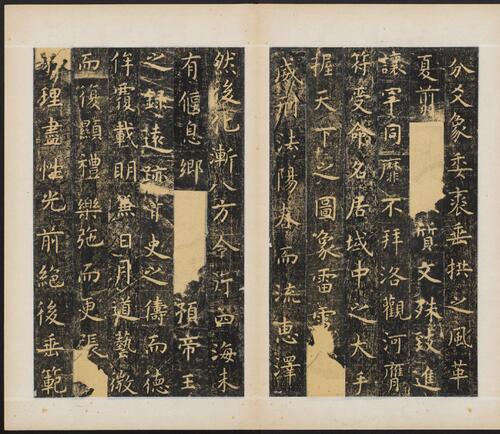 分爻象委裘垂拱之風革
夏翦 質文殊致進
讓罕同靡不拜洛觀河膺
符受命名居域中之大手
握天下之圖象雷電
威刑法陽春而流惠澤
然後化漸八方令行四海未
有偃息鄉 預帝王
之錄遠跡胥史之儔而德
侔覆載明兼日月道藝微
而復顯禮樂弛而更張
理盡性光前絕後垂範